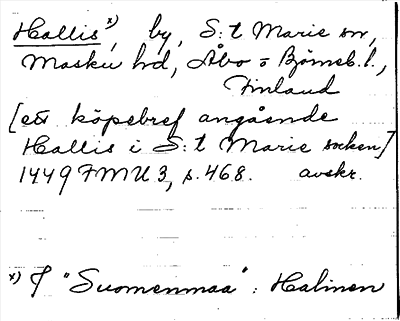 Hallis *), by, S:t Marie sn,
Masku hd, Åbo o Björneb. l.,
Finland
[ett köpebref angående
Hallis i S:t Marie socken]
1449 FMU 3, s. 468. avskr.
*) I "Suomenmaa": Halinen